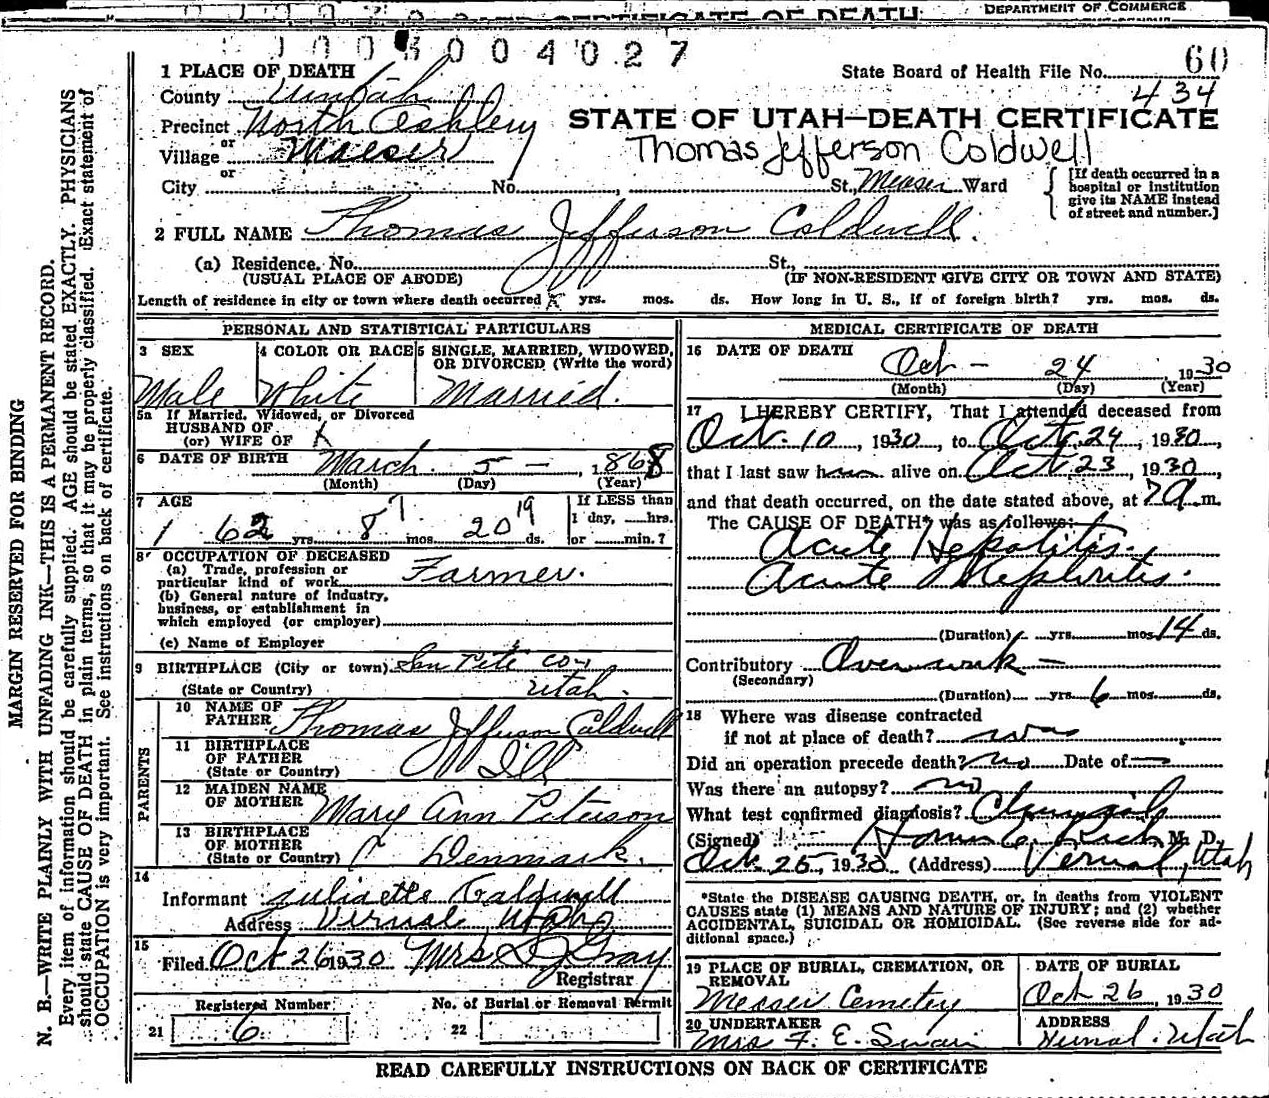 CERTIFICATE OF DEATH
DEPARTMENT OF COMMERCE
004027
60
State Board of Health File No.
434
1 PLACE OF DEATH
County Uintah
Precinct North Ashley
or
Village Maeser
or
City No. , St., Maeser Ward
STATE OF UTAH—DEATH CERTIFICATE
Thomas Jefferson Coldwell
[If death occurred in a
hospital or institution
give its NAME instead
of street and number.]
2 FULL NAME Thomas Jefferson Coldwell.
(a) Residence. No. St.,
(USUAL PLACE OF ABODE) (IF NON-RESIDENT GIVE CITY OR TOWN AND STATE)
Length of residence in city or town where death occurred yrs. mos. ds. How long in U. S., if of foreign birth? yrs. mos. ds.
PERSONAL AND STATISTICAL PARTICULARS
3 SEX
Male
4 COLOR OR RACE
White
5 SINGLE, MARRIED, WIDOWED,
OR DIVORCED (Write the word)
Married.
5a If Married, Widowed, or Divorced
HUSBAND OF
(or) WIFE OF
6 DATE OF BIRTH March 5 – , 1868
(Month) (Day) (Year)
7 AGE
62 yrs. 8 7 mos. 20 19 ds.
If LESS than
1 day, hrs.
or min.?
8 OCCUPATION OF DECEASED
(a) Trade, profession or
particular kind of work Farmer.
(b) General nature of industry,
business, or establishment in
which employed (or employer)
(c) Name of Employer
9 BIRTHPLACE (City or town) San Pete co.
(State or Country) Utah.
PARENTS
10 NAME OF
FATHER Thomas Jefferson Caldwell
11 BIRTHPLACE
OF FATHER
(State or Country) Ill
12 MAIDEN NAME
OF MOTHER Mary Ann Peterson
13 BIRTHPLACE
OF MOTHER
(State or Country) Denmark.
14
Informant Juliaette Caldwell
Address Vernal Utah
15
Filed Oct 26 1930 Mrs Gray
Registrar
Registered Number
21 6
No. of Burial or Removal Permit
22
MEDICAL CERTIFICATE OF DEATH
16 DATE OF DEATH Oct – 24 1930
(Month) (Day) (Year)
17 I HEREBY CERTIFY, That I attended deceased from
Oct. 10, 1930, to Oct. 24, 1930,
that I last saw him alive on Oct 23, 1930,
and that death occurred, on the date stated above, at 7 a m.
The CAUSE OF DEATH* was as follows:
Acute Hepatitis.
Acute Nephritis.
(Duration) yrs. mos. 14 ds.
Contributory Over work –
(Secondary)
(Duration) yrs. 6 mos. ds.
18 Where was disease contracted
if not at place of death?
Did an operation precede death? no Date of —
Was there an autopsy? no
What test confirmed diagnosis?
(Signed) Homer E. Rich M. D.
Oct 25, 1930 (Address) Vernal, Utah
*State the DISEASE CAUSING DEATH, or, in deaths from VIOLENT
CAUSES state (1) MEANS AND NATURE OF INJURY; and (2) whether
ACCIDENTAL, SUICIDAL OR HOMICIDAL. (See reverse side for ad-
ditional space.)
19 PLACE OF BURIAL, CREMATION, OR
REMOVAL
Maeser Cemetery
DATE OF BURIAL
Oct 26, 1930
20 UNDERTAKER
Mrs F. E. Swain
ADDRESS
Vernal. Utah
READ CAREFULLY INSTRUCTIONS ON BACK OF CERTIFICATE
MARGIN RESERVED FOR BINDING
N. B.—WRITE PLAINLY WITH UNFADING INK—THIS IS A PERMANENT RECORD.
Every item of information should be carefully supplied. AGE should be stated EXACTLY. PHYSICIANS
should state CAUSE OF DEATH in plain terms, so that it may be properly classified. Exact statement of
OCCUPATION is very important. See instructions on back of certificate.